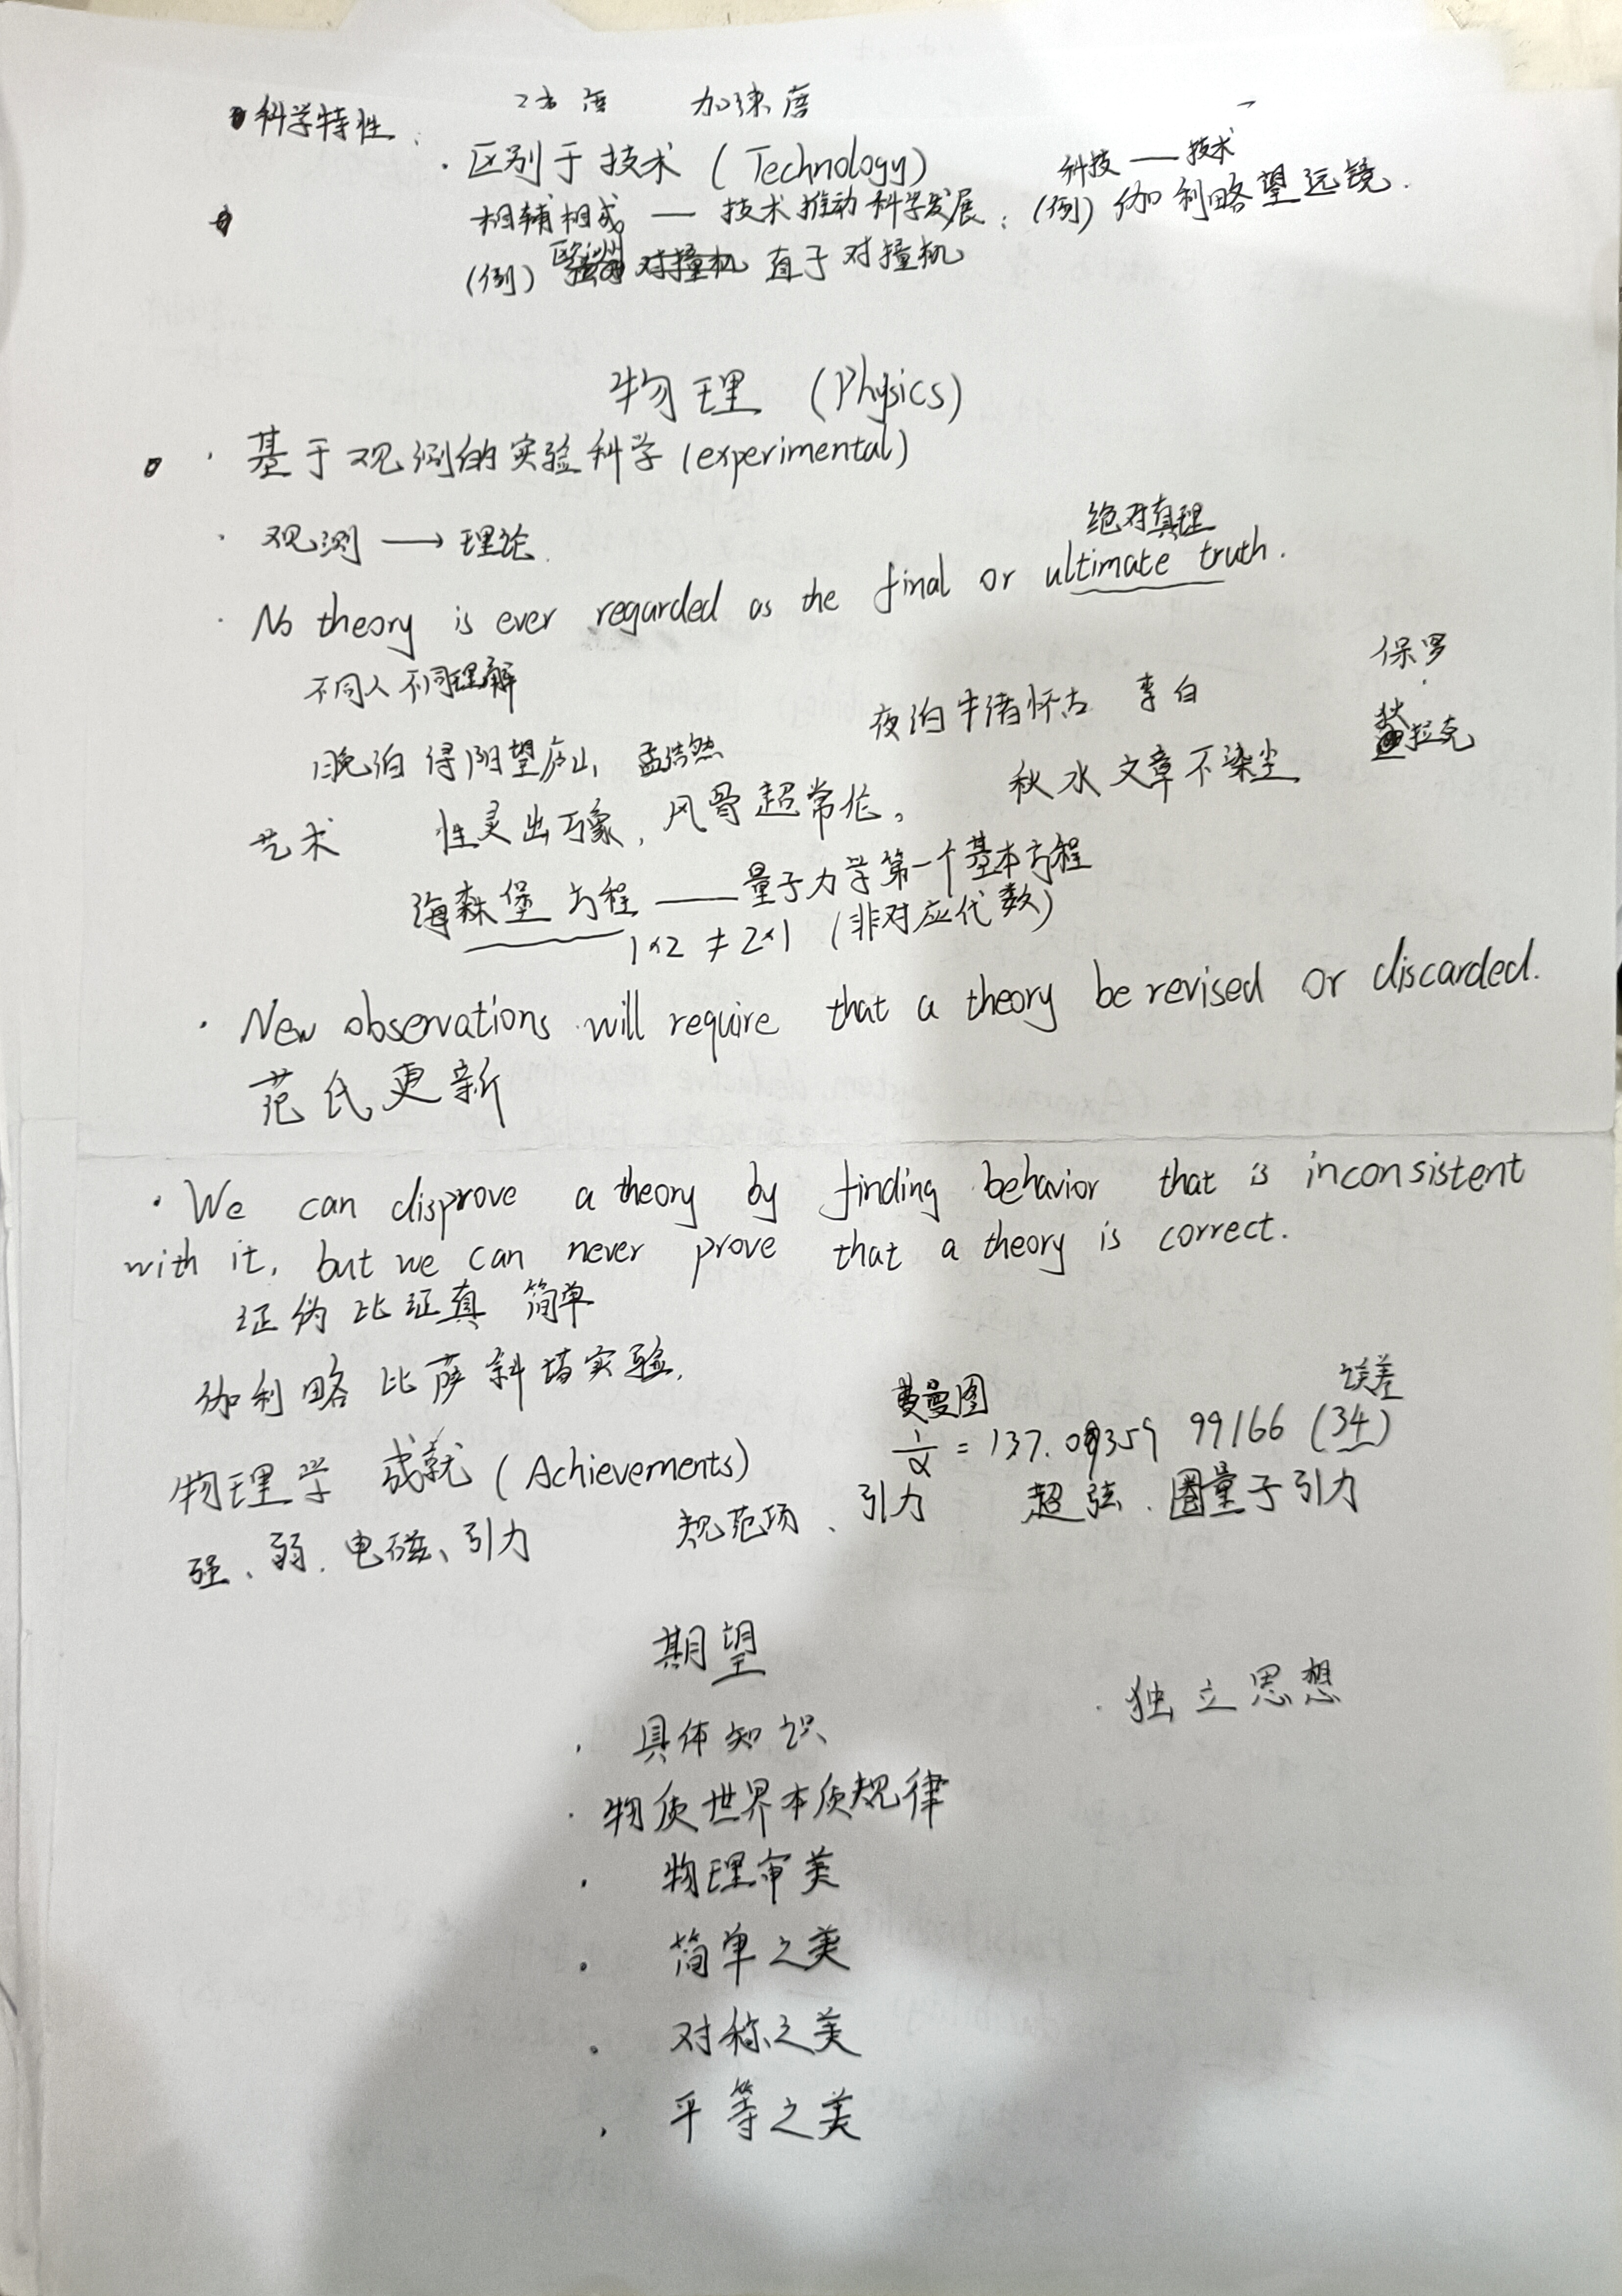 科学特性: 速度 加速度
· 区别于技术 (Technology) 科技 —— 技术
相辅相成 —— 技术推动科学发展; (例) 伽利略望远镜.
(例) 对撞机 直于对撞机
物理 (Physics)
· 基于观测的实验科学 (experimental)
· 观测 → 理论
绝对真理
· No theory is ever regarded as the final or ultimate truth.
不同人不同理解 保罗
夜泊牛渚怀古 李白 狄拉克
晚泊浔阳望庐山 孟浩然
秋水文章不染尘
艺术 性灵出万象, 风骨超常伦。
海森堡方程 —— 量子力学第一个基本方程
1×2 ≠ 2×1 (非对应代数)
· New observations will require that a theory be revised or discarded.
范氏更新
· We can disprove a theory by finding behavior that is inconsistent
with it, but we can never prove that a theory is correct.
证伪比证真 简单
伽利略比萨斜塔实验.
费曼图 误差
物理学 成就 (Achievements) 1/α = 137.0359 99166 (34)
强、弱、电磁、引力 规范场、引力 超弦、圈量子引力
期望
· 独立思想
· 具体知识
· 物质世界本质规律
· 物理审美
· 简单之美
· 对称之美
· 平等之美